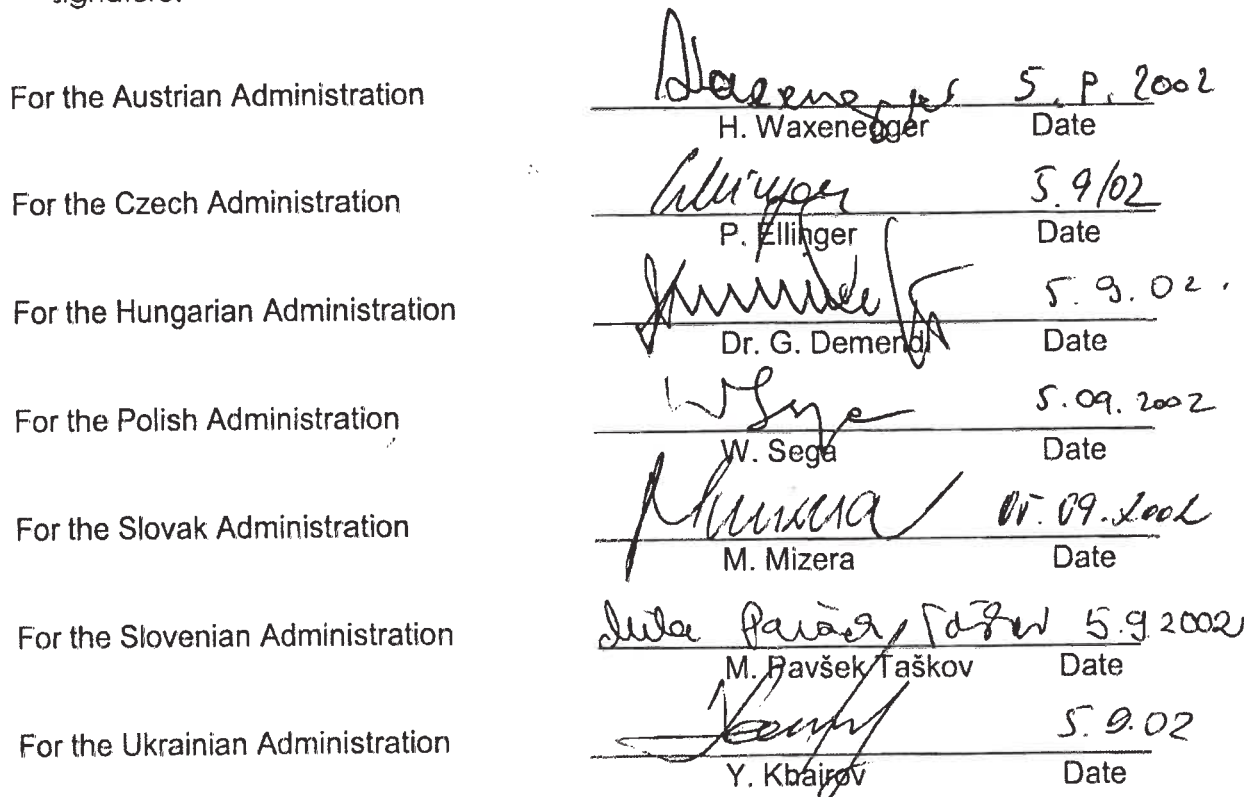 signature.
For the Austrian Administration 5. 9. 2002
H. Waxenegger Date
For the Czech Administration Ellinger 5. 9/02
P. Ellinger Date
For the Hungarian Administration 5. 9. 02.
Dr. G. Demendi Date
For the Polish Administration W Sega 5. 09. 2002
W. Sega Date
For the Slovak Administration Mizera 05. 09. 2002
M. Mizera Date
For the Slovenian Administration 5. 9 2002
M. Pavšek Taškov Date
For the Ukrainian Administration 5. 9. 02
Y. Khairov Date